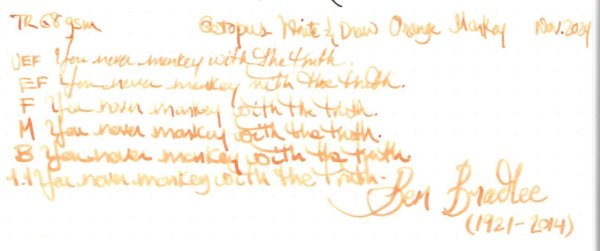 TR 68 gsm Octopus Write & Draw Orange Monkey Nov. 2024
UEF You never monkey with the truth.
EF You never monkey with the truth.
F You never monkey with the truth.
M You never monkey with the truth.
B You never monkey with the truth
1.1 You never monkey with the truth.
Ben Bradlee
(1921-2014)